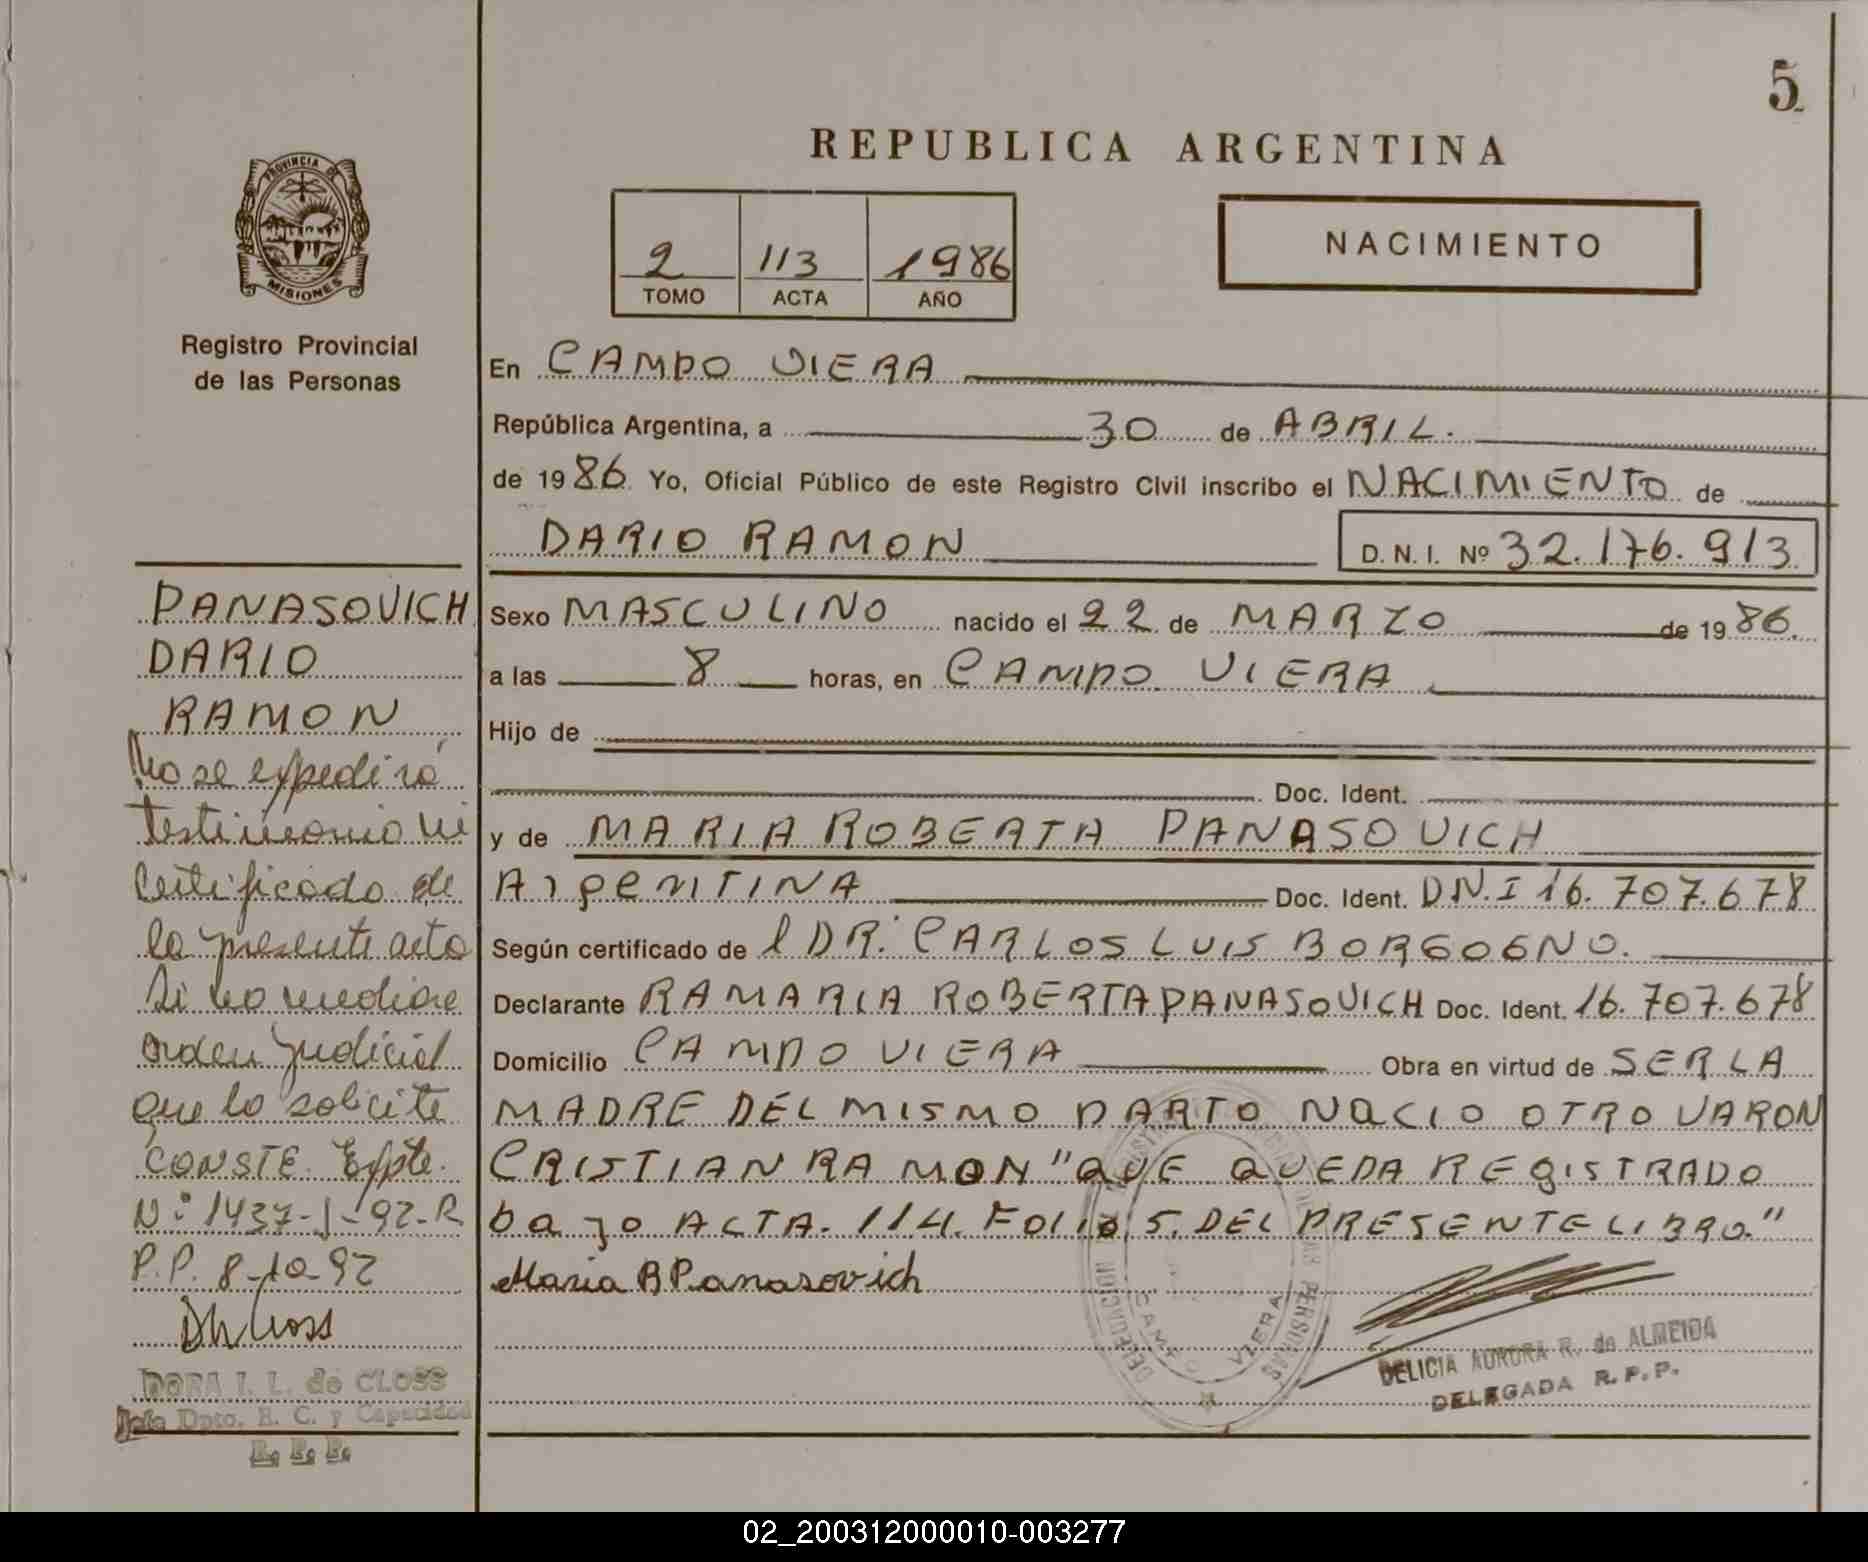 5
REPUBLICA ARGENTINA
PROVINCIA DE
MISIONES
Registro Provincial
de las Personas
2 113 1986
TOMO ACTA AÑO
NACIMIENTO
En CAMPO VIERA
República Argentina, a 30 de ABRIL.
de 1986. Yo, Oficial Público de este Registro Civil inscribo el NACIMIENTO de
DARIO RAMON D.N.I. Nº 32.176.913
Sexo MASCULINO nacido el 22 de MARZO de 1986.
a las 8 horas, en CAMPO VIERA
Hijo de
Doc. Ident.
y de MARIA ROBERTA PANASOVICH
ArgenTINA Doc. Ident. D.N.I 16.707.678
Según certificado de l DR. CARLOS LUIS BORGOGNO.
Declarante RAMARIA ROBERTA PANASOVICH Doc. Ident. 16.707.678
Domicilio CAMPO VIERA Obra en virtud de SER LA
MADRE DEL MISMO PARTO NaCIO OTRO VARON
CRISTIAN RAMON "QUE QUEDA REgISTRADO
bajo ACTA. 114. Folio 5. DEL PRESENTE LIBRO."
Maria R Panasovich
DELICIA AURORA R. de ALMEIDA
DELEGADA R.P.P.
CAMPO VIERA
PANASOVICH
DARIO
RAMON
No se expedirá
testimonio ni
certificado de
la presente acta
si no mediare
orden judicial
que lo solicite
CONSTE. Expte.
Nº 1437-J-92-R
P.P. 8-10-92
DORA I. L. de CLOSS
Jefe Dpto. E. C. y Capacidad
R. P. P.
02_200312000010-003277